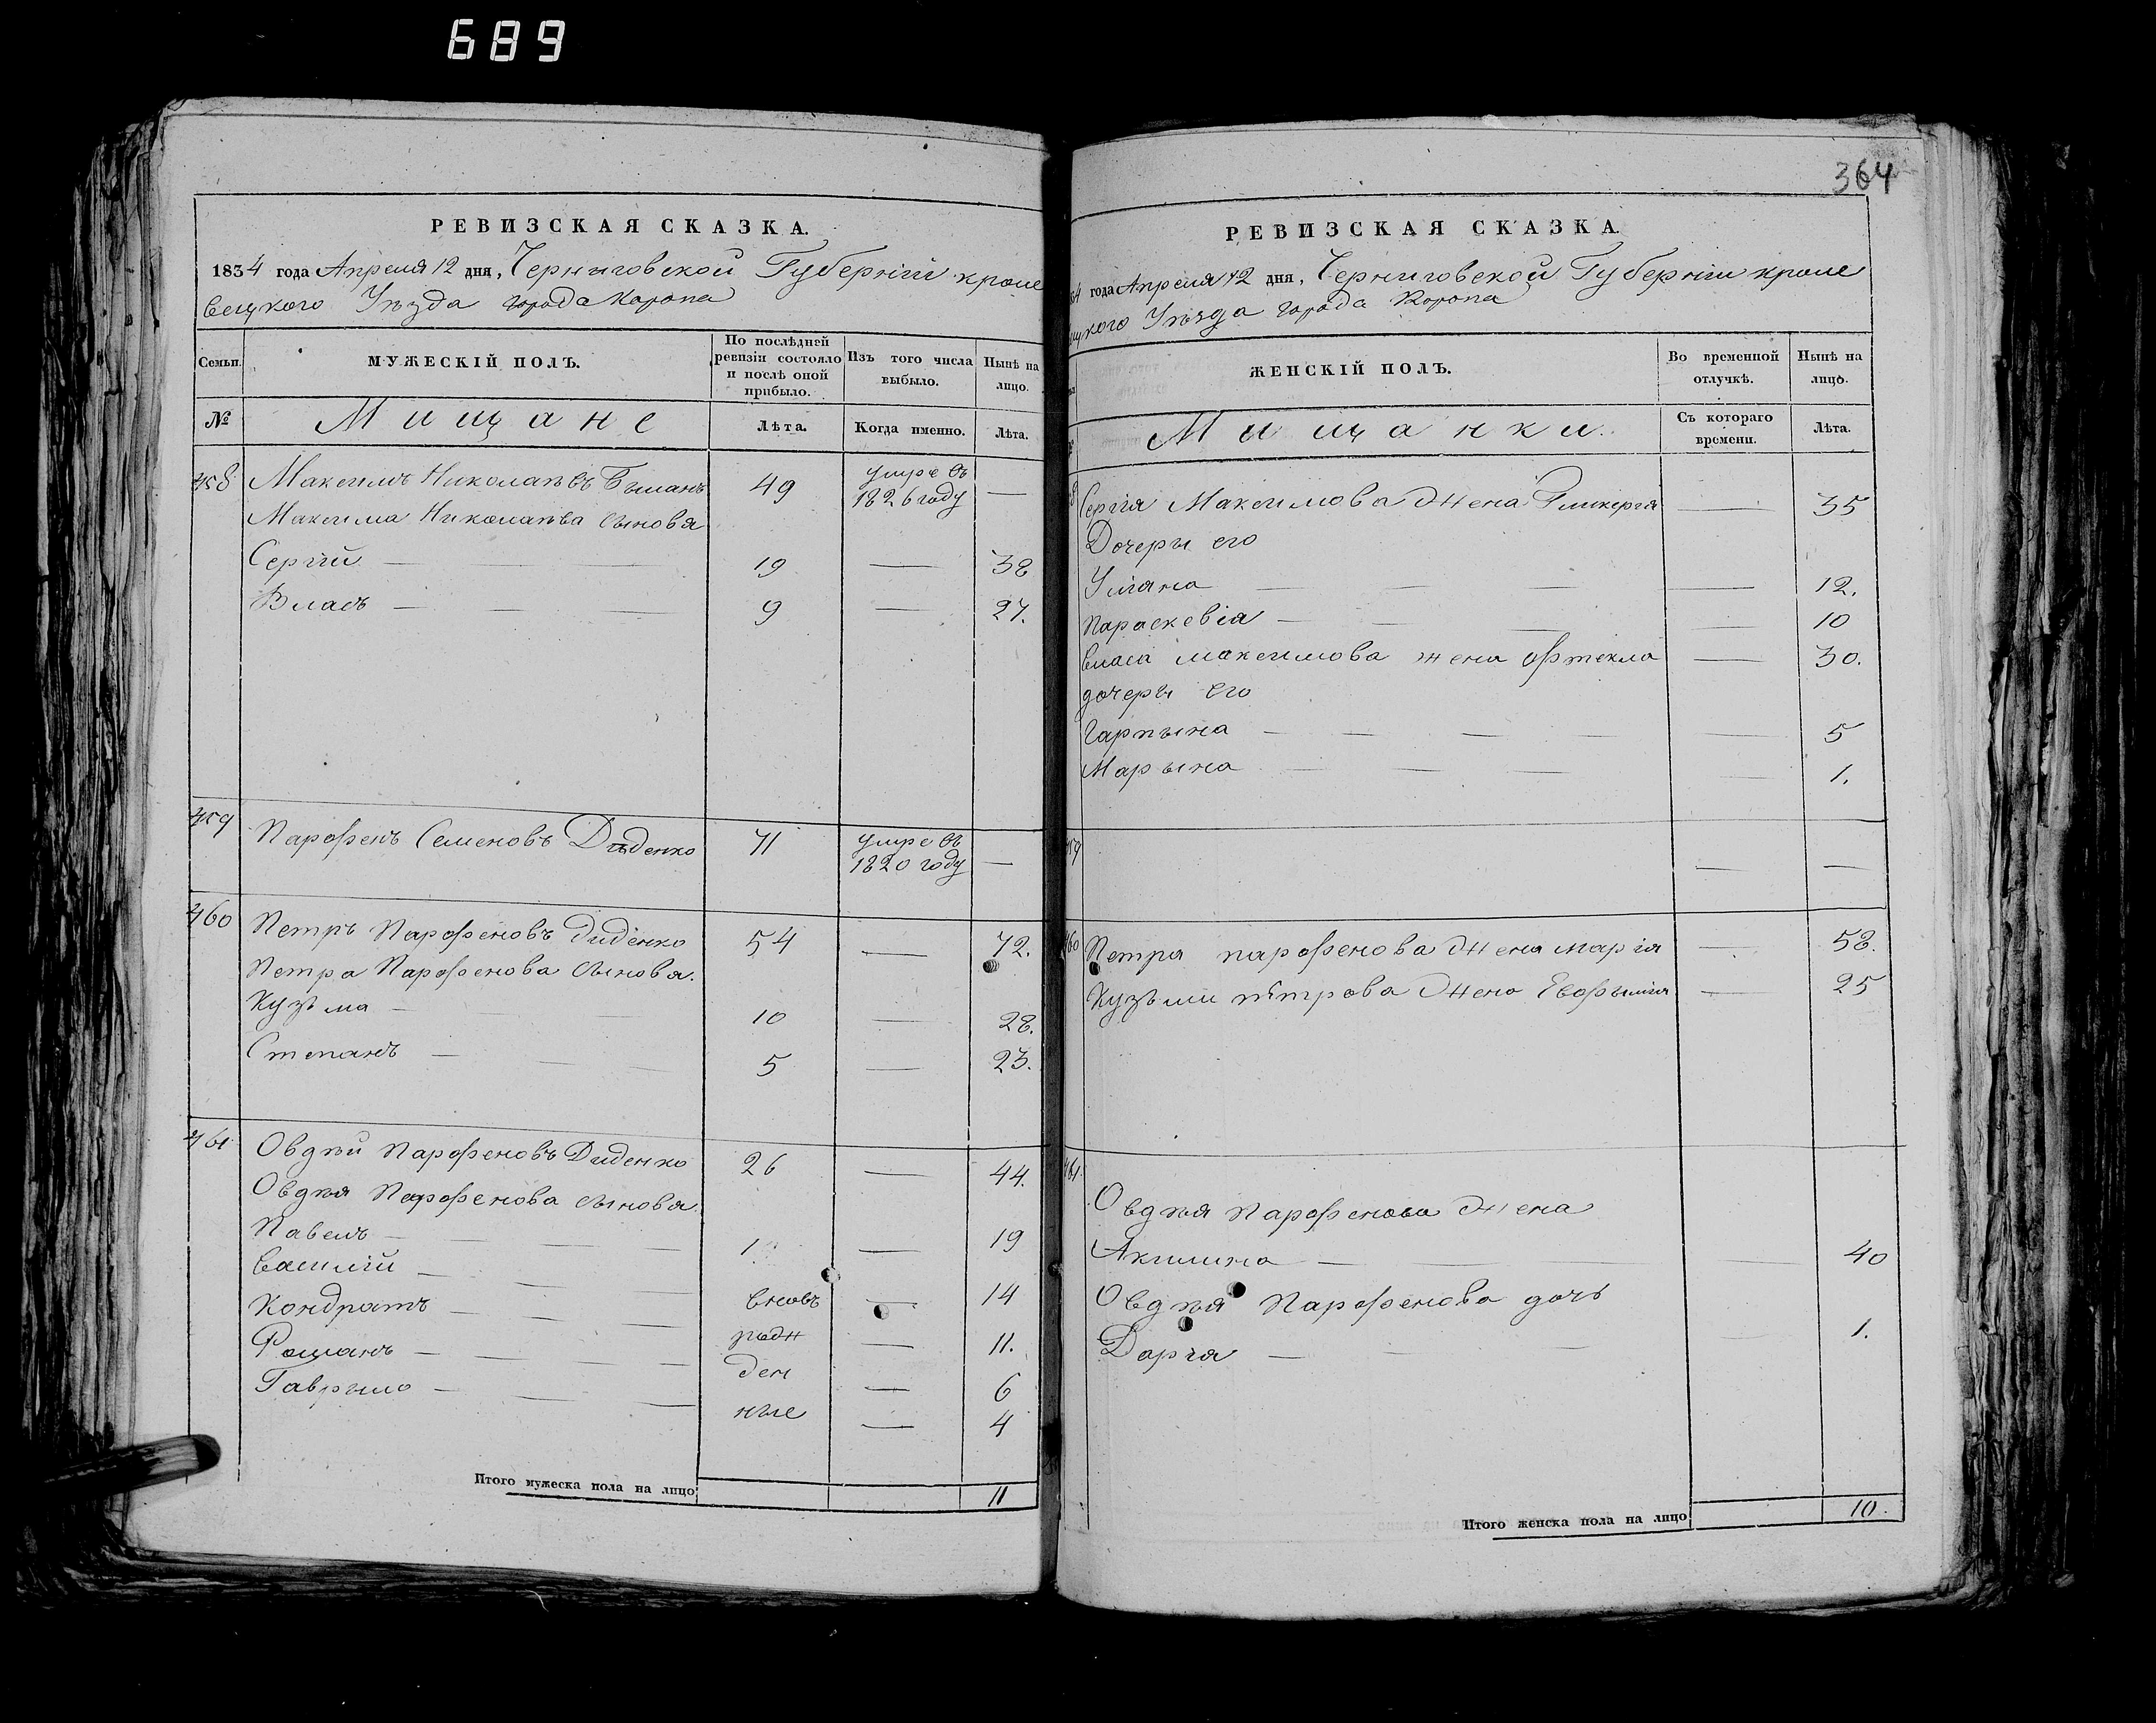 689
РЕВИЗСКАЯ СКАЗКА.
1834 года Апреля 12 дня, Черниговской Губерніи кроле
вецкого Уезда города Коропа
Семьи.
МУЖЕСКІЙ ПОЛЪ.
По послѣдней
ревизіи состояло
и послѣ оной
прибыло.
Изъ того числа
выбыло.
Нынѣ на
лицо.
№
Мищане
Лѣта.
Когда именно.
Лѣта.
458 Максимъ Николаевъ 49 умре въ
1826 году —
Максима Николаева сынова
Сергій — 19 — 38
Власъ — 9 — 27.
459 Парофенъ Семеновъ Диденко 71 умре въ
1820 году —
460 Петръ Парофеновъ Диденко 54 — 72.
Петра Парофенова сынова.
Кузьма — 10 — 28.
Степанъ — 5 — 23.
461 Овдѣй Парофеновъ Диденко 26 — 44.
Овдѣя Парофенова сынова
Павелъ — 1 — 19
Василій — вновь — 14
Кондратъ — рожд — 11.
Романъ — ден — 6
Гаврыло — ные — 4
Итого мужеска пола на лицо 11
364
РЕВИЗСКАЯ СКАЗКА.
34 года Апреля 12 дня, Черниговской Губерніи кроле
ецкого Уезда города Коропа
ЖЕНСКІЙ ПОЛЪ.
Во временной
отлучкѣ.
Нынѣ на
лицо.
Мищанки.
Съ котораго
времени.
Лѣта.
8 Сергія Максимова жена Гликерія — 35
Дочеры его
Уліяна — 12.
Параскевія — 10
Власа максимова жена — 30.
дочеры его
Гарпына — 5
Марына — 1.
459 — —
460 Петра парофенова жена марія — 58.
Кузьми петрова жена Евофымія — 25
461.
Овдѣя Парофенова жена
Акилина — 40
Овдѣя Парофенова дочь
Дарія — 1.
Итого женска пола на лицо 10.